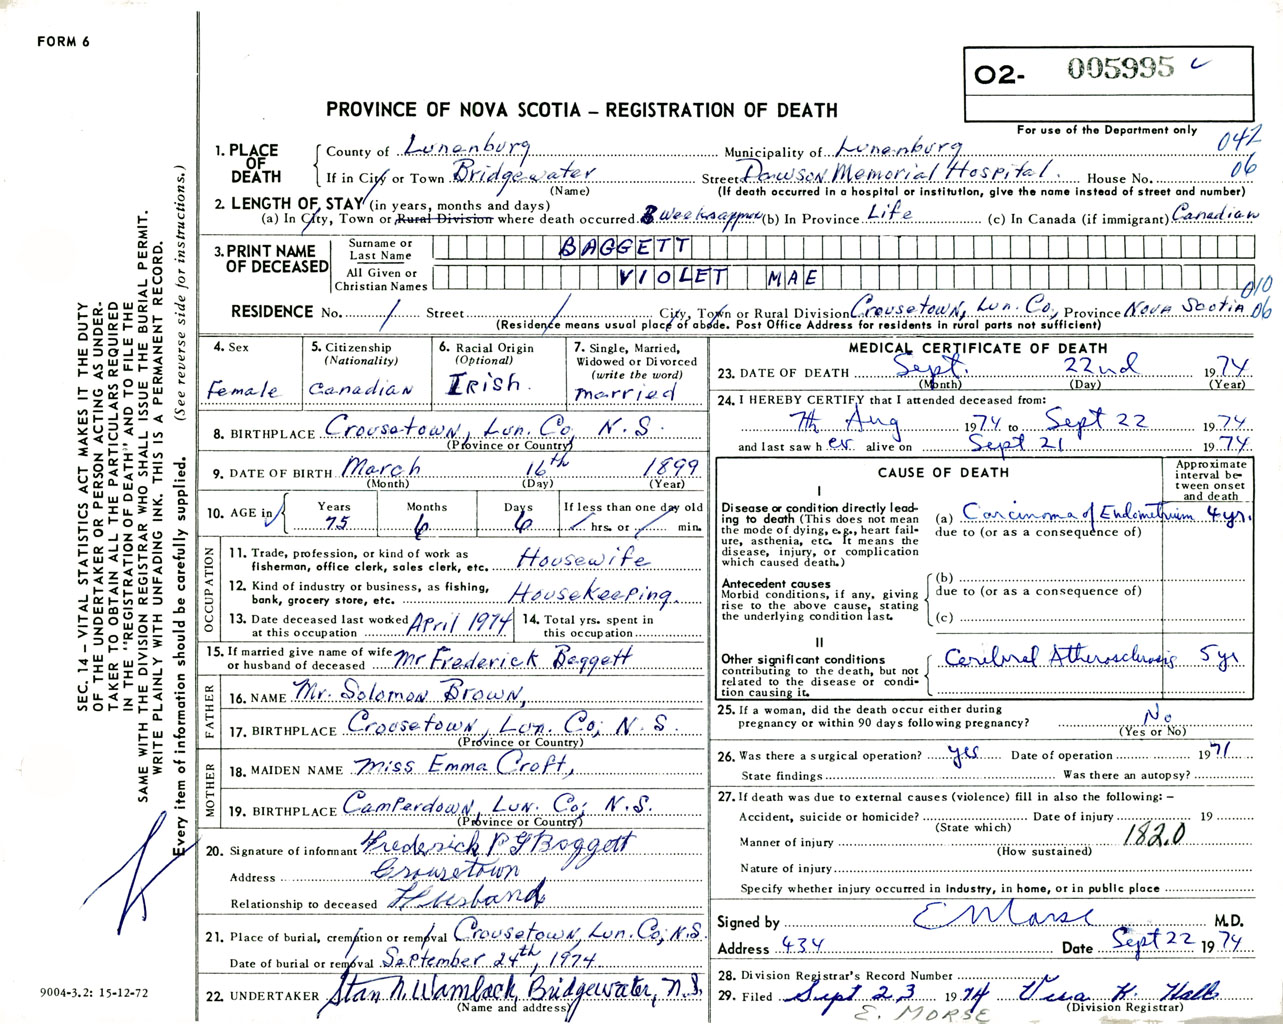 FORM 6
O2- 005995
PROVINCE OF NOVA SCOTIA – REGISTRATION OF DEATH
For use of the Department only
042
06
1. PLACE OF DEATH
County of Lunenburg Municipality of Lunenburg
If in City or Town Bridgewater Street Dawson Memorial Hospital. House No.
(Name) (If death occurred in a hospital or institution, give the name instead of street and number)
2. LENGTH OF STAY (in years, months and days)
(a) In City, Town or Rural Division where death occurred. 8 weeks approx (b) In Province Life (c) In Canada (if immigrant) Canadian
3. PRINT NAME OF DECEASED
Surname or Last Name BAGGETT
All Given or Christian Names VIOLET MAE
010
06
RESIDENCE No. / Street / City, Town or Rural Division Crousetown, Lun. Co, Province Nova Scotia
(Residence means usual place of abode. Post Office Address for residents in rural parts not sufficient)
4. Sex
Female
5. Citizenship
(Nationality)
Canadian
6. Racial Origin
(Optional)
Irish.
7. Single, Married,
Widowed or Divorced
(write the word)
married
8. BIRTHPLACE Crousetown, Lun. Co, N.S.
(Province or Country)
9. DATE OF BIRTH March 16th 1899
(Month) (Day) (Year)
10. AGE in
Years Months Days If less than one day old
75 6 6 / hrs. or / min.
OCCUPATION
11. Trade, profession, or kind of work as
fisherman, office clerk, sales clerk, etc. Housewife
12. Kind of industry or business, as fishing,
bank, grocery store, etc. Housekeeping.
13. Date deceased last worked
at this occupation April 1974
14. Total yrs. spent in
this occupation
15. If married give name of wife
or husband of deceased Mr Frederick Baggett
FATHER
16. NAME Mr. Solomon Brown,
17. BIRTHPLACE Crousetown, Lun. Co; N.S.
(Province or Country)
MOTHER
18. MAIDEN NAME Miss Emma Croft,
19. BIRTHPLACE Camperdown, Lun. Co; N.S.
(Province or Country)
20. Signature of informant Frederick P G Baggett
Address Crousetown
Relationship to deceased Husband
21. Place of burial, cremation or removal Crousetown, Lun. Co; N.S.
Date of burial or removal September 24th, 1974
22. UNDERTAKER Stan N. Wamback, Bridgewater, N.S.
(Name and address)
MEDICAL CERTIFICATE OF DEATH
23. DATE OF DEATH Sept. 22nd 1974
(Month) (Day) (Year)
24. I HEREBY CERTIFY that I attended deceased from:
7th Aug 1974 to Sept 22 1974
and last saw her alive on Sept 21 1974
CAUSE OF DEATH
Approximate
interval be-
tween onset
and death
I
Disease or condition directly lead-
ing to death (This does not mean
the mode of dying, e.g., heart fail-
ure, asthenia, etc. It means the
disease, injury, or complication
which caused death.)
(a) Carcinoma of Endometrium 4 yr.
due to (or as a consequence of)
Antecedent causes
Morbid conditions, if any, giving
rise to the above cause, stating
the underlying condition last.
(b)
due to (or as a consequence of)
(c)
II
Other significant conditions
contributing to the death, but not
related to the disease or condi-
tion causing it.
Cerebral Atherosclerosis 5 yr
25. If a woman, did the death occur either during
pregnancy or within 90 days following pregnancy? No
(Yes or No)
26. Was there a surgical operation? yes Date of operation 1971
State findings Was there an autopsy?
27. If death was due to external causes (violence) fill in also the following: –
Accident, suicide or homicide? Date of injury 19
(State which)
Manner of injury 182.0
(How sustained)
Nature of injury
Specify whether injury occurred in Industry, in home, or in public place
Signed by E Morse M.D.
Address 434 Date Sept 22 1974
28. Division Registrar's Record Number
29. Filed Sept 23 1974 Vera K. Hall
(Division Registrar)
E. MORSE
SEC. 14 – VITAL STATISTICS ACT MAKES IT THE DUTY
OF THE UNDERTAKER OR PERSON ACTING AS UNDER-
TAKER TO OBTAIN ALL THE PARTICULARS REQUIRED
IN THE "REGISTRATION OF DEATH" AND TO FILE THE
SAME WITH THE DIVISION REGISTRAR WHO SHALL ISSUE THE BURIAL PERMIT.
WRITE PLAINLY WITH UNFADING INK. THIS IS A PERMANENT RECORD.
Every item of information should be carefully supplied. (See reverse side for instructions.)
9004-3.2: 15-12-72